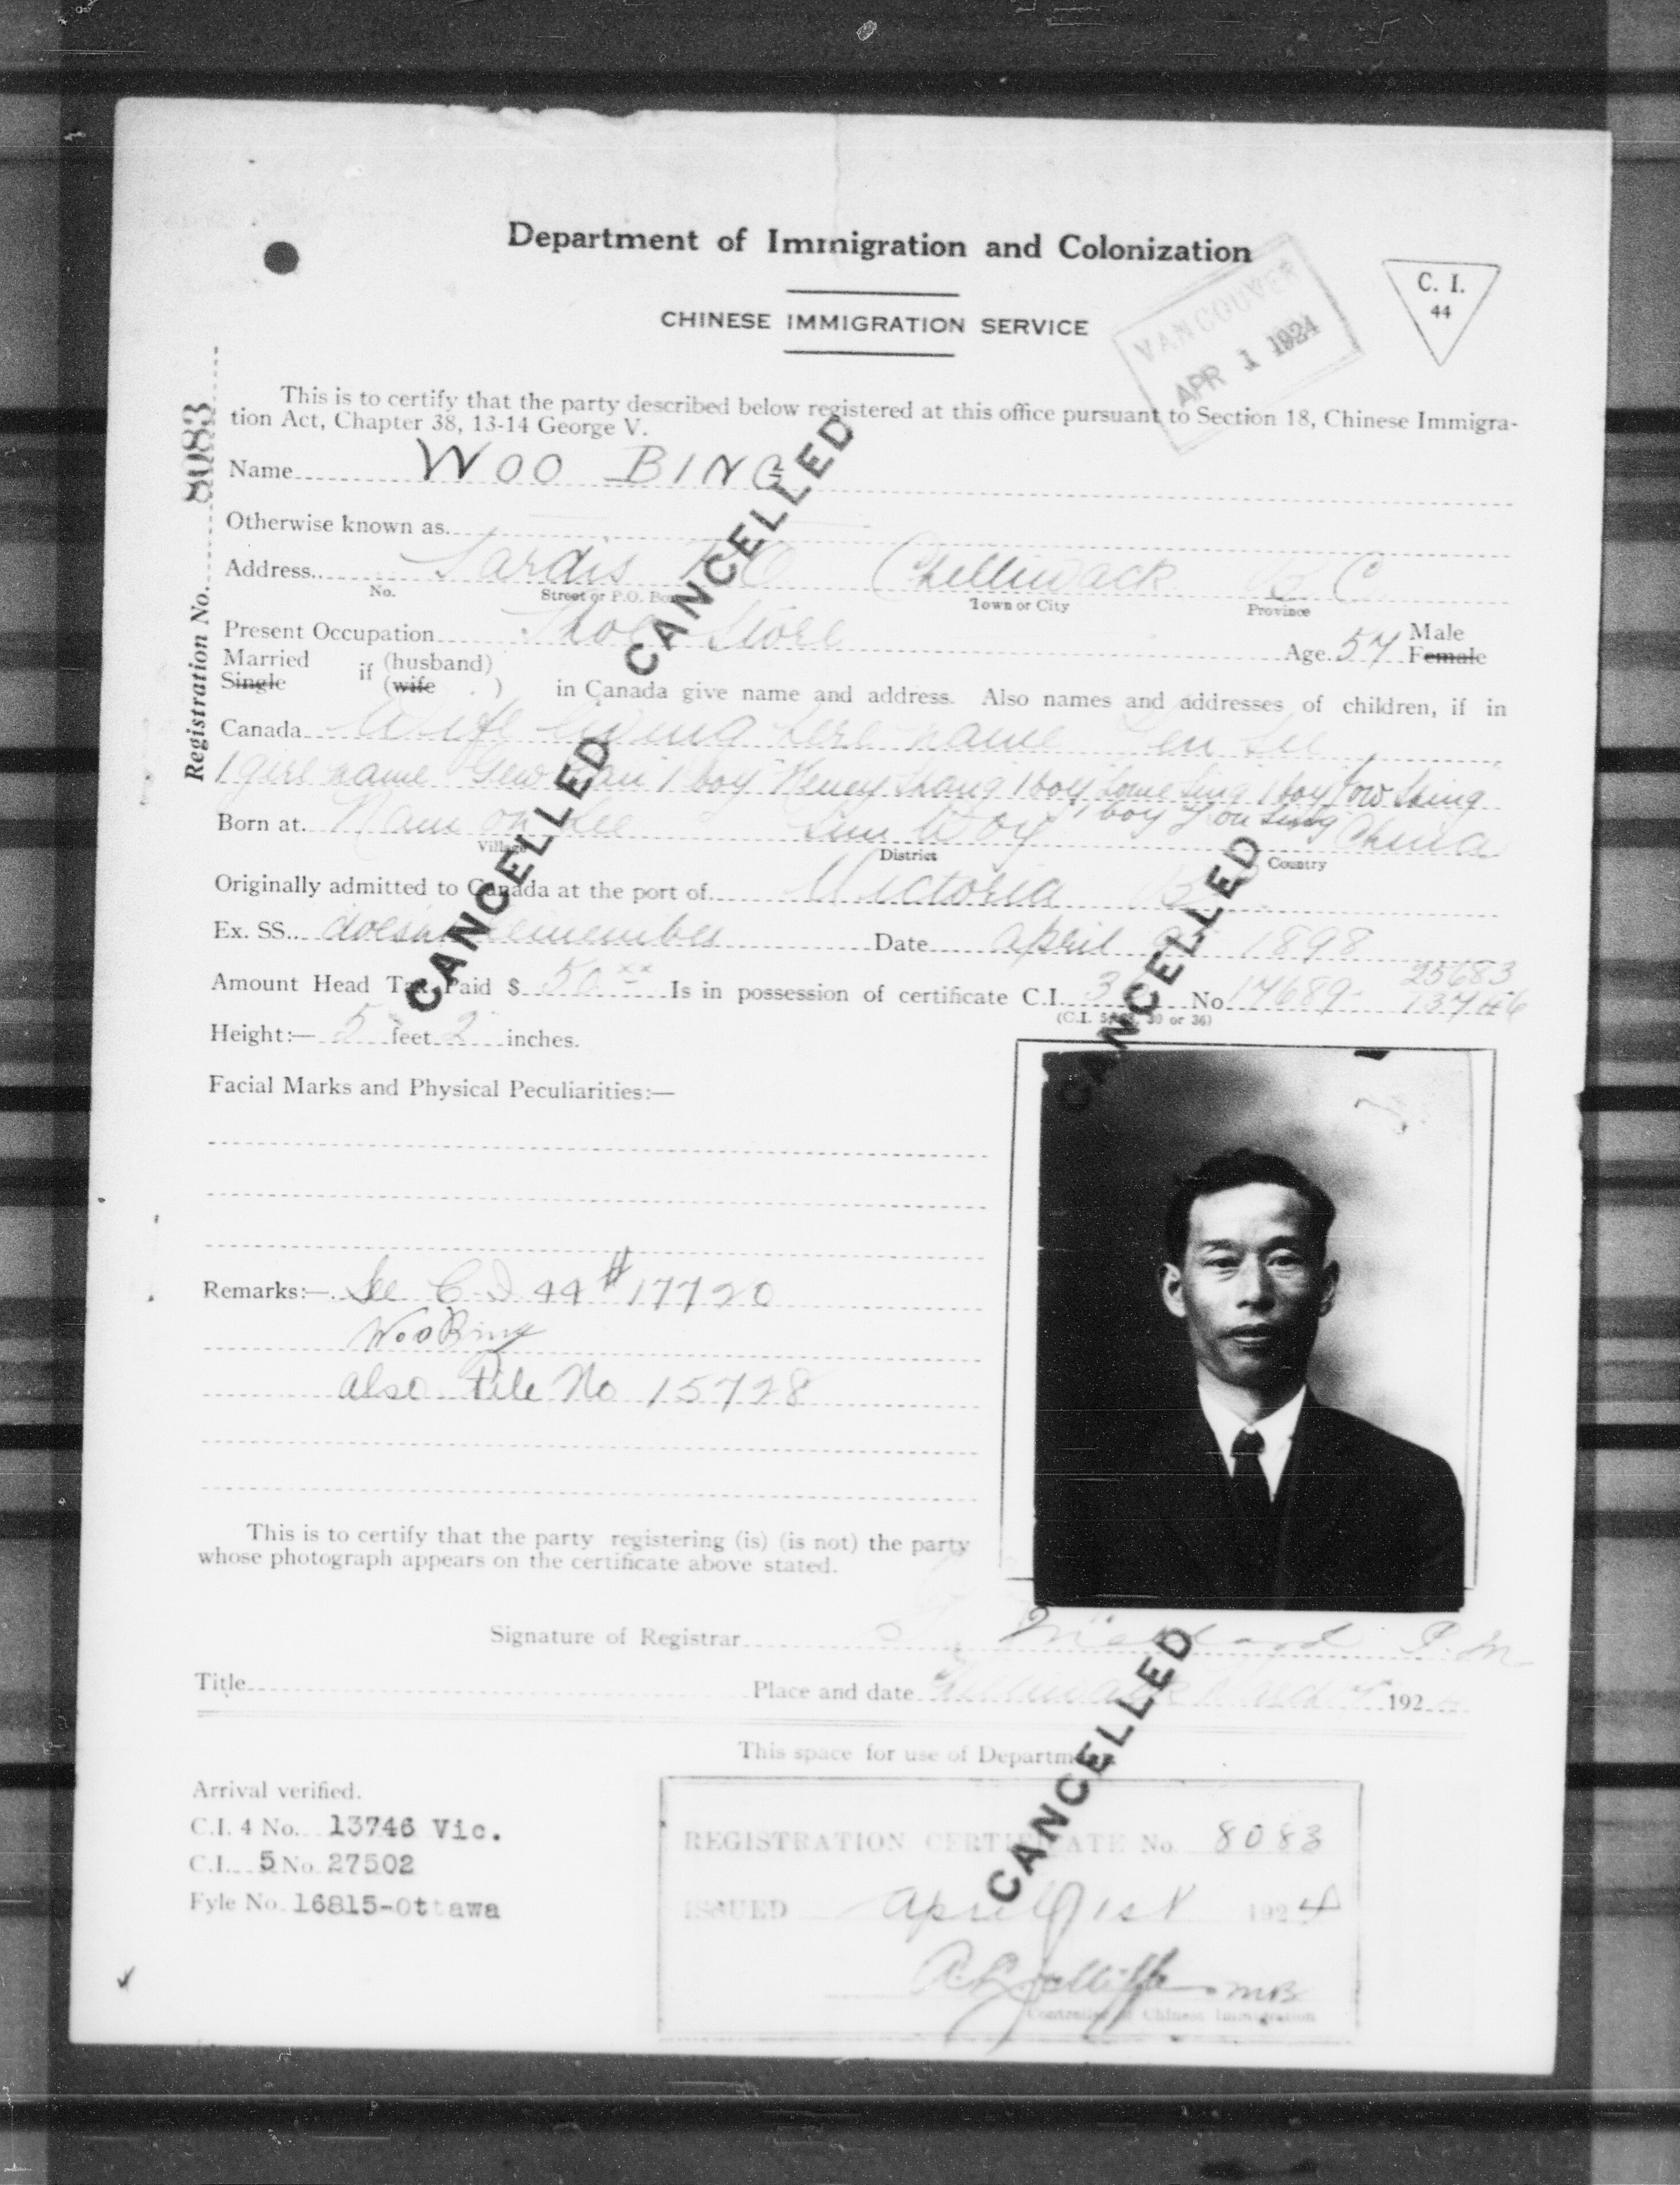 Department of Immigration and Colonization
CHINESE IMMIGRATION SERVICE
C. I.
44
VANCOUVER
APR 1 1924
This is to certify that the party described below registered at this office pursuant to Section 18, Chinese Immigra-
tion Act, Chapter 38, 13-14 George V.
Registration No. 8083
Name WOO BING
Otherwise known as
Address Sardis P O Chilliwack B C
No. Street or P.O. Box Town or City Province
Present Occupation Shoe Store Age 57 Male Female
Married Single if (husband) (wife) in Canada give name and address. Also names and addresses of children, if in
Canada Wife living here name Lee
1 girl name 1 boy Henry 1 boy 1 boy
1 boy
Born at China
Village District Country
Originally admitted to Canada at the port of Victoria B
Ex. SS. doesn't remember Date april 1898
Amount Head Tax Paid $ 50 xx Is in possession of certificate C.I. 3 No 17689 25683
13746
(C.I. 5, 30 or 36)
Height:— 5 feet 2 inches.
Facial Marks and Physical Peculiarities:—
Remarks:— See C I 44 #17720
Woo Bing
also File No 15728
This is to certify that the party registering (is) (is not) the party
whose photograph appears on the certificate above stated.
Signature of Registrar P. M
Title Place and date Chilliwack 192
This space for use of Department
Arrival verified.
C.I. 4 No. 13746 Vic.
C.I. 5 No. 27502
Fyle No. 16815-Ottawa
REGISTRATION CERTIFICATE No. 8083
ISSUED April 1st 1924
Controller of Chinese Immigration
CANCELLED
CANCELLED
CANCELLED
CANCELLED